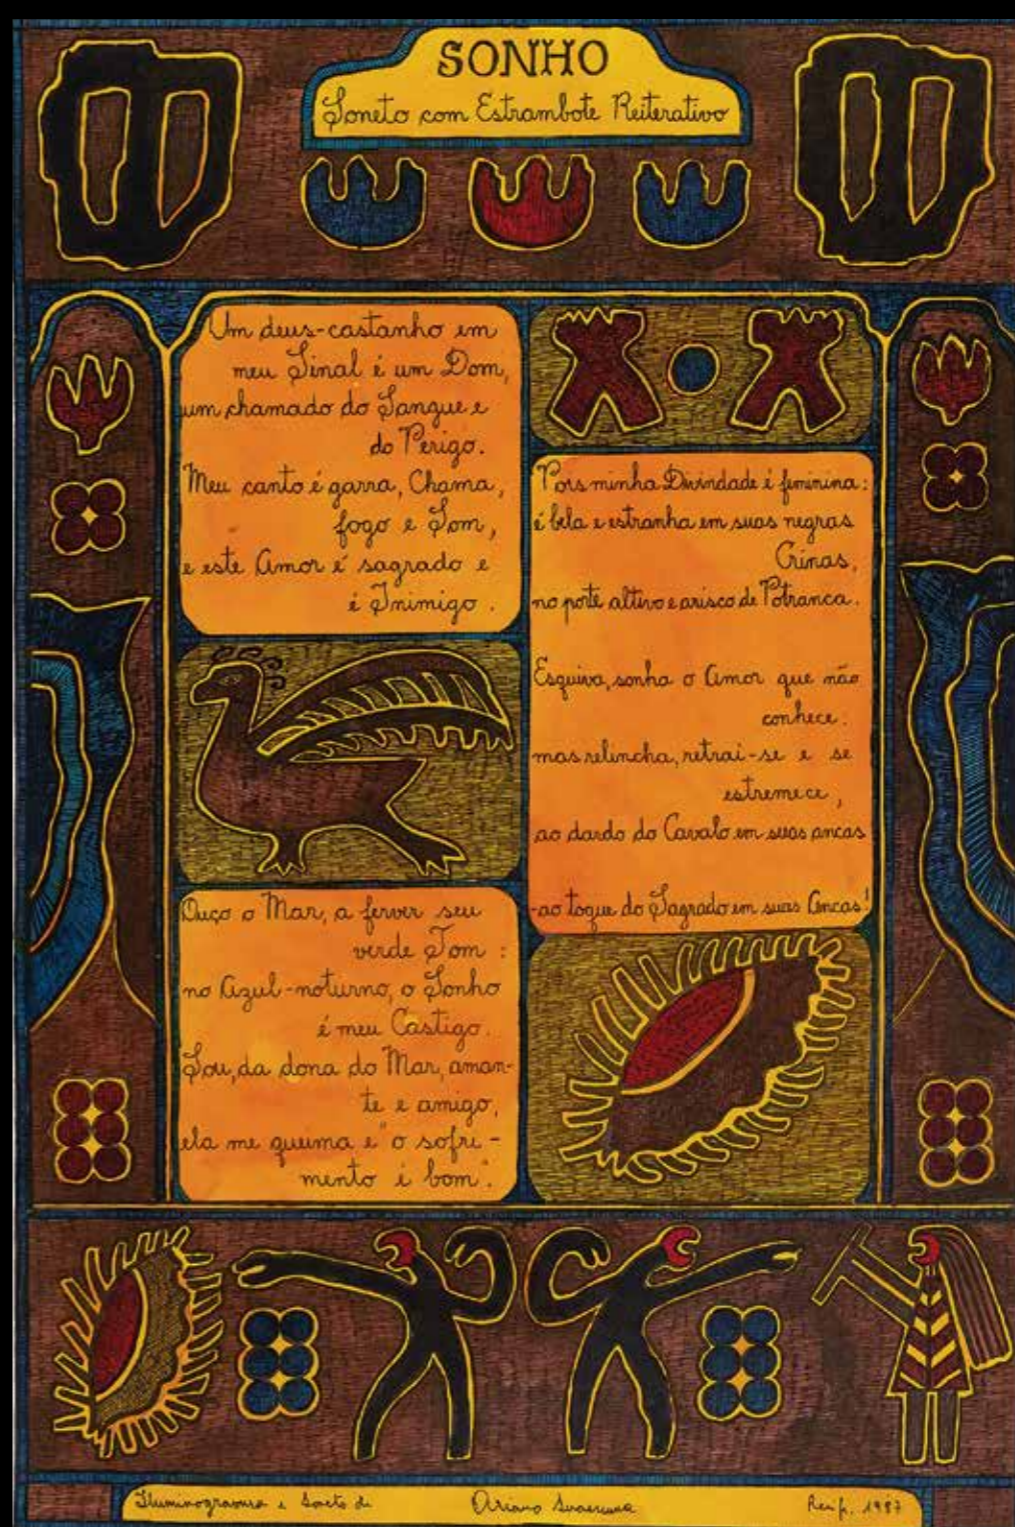 SONHO
Soneto com Estrambote Reiterativo
Um deus-castanho em
meu Sinal é um Dom,
um chamado do Sangue e
do Perigo.
Meu canto é garra, Chama,
fogo e Som,
e este Amor é sagrado e
é Inimigo.
Ouço o Mar, a ferver seu
verde Tom:
no Azul-noturno, o Sonho
é meu Castigo.
Sou, da dona do Mar, aman-
te e amigo,
ela me queima e "o sofri-
mento é bom".
Pois minha Divindade é feminina:
é bela e estranha em suas negras
Crinas,
no porte altivo e arisco de Potranca.
Esquiva, sonha o Amor que não
conhece:
mas relincha, retrai-se e se
estremece,
ao dardo do Cavalo em suas ancas
-ao toque do Sagrado em suas Ancas!
Iluminogravura e Soneto de
Ariano Suassuna
Recife, 1987